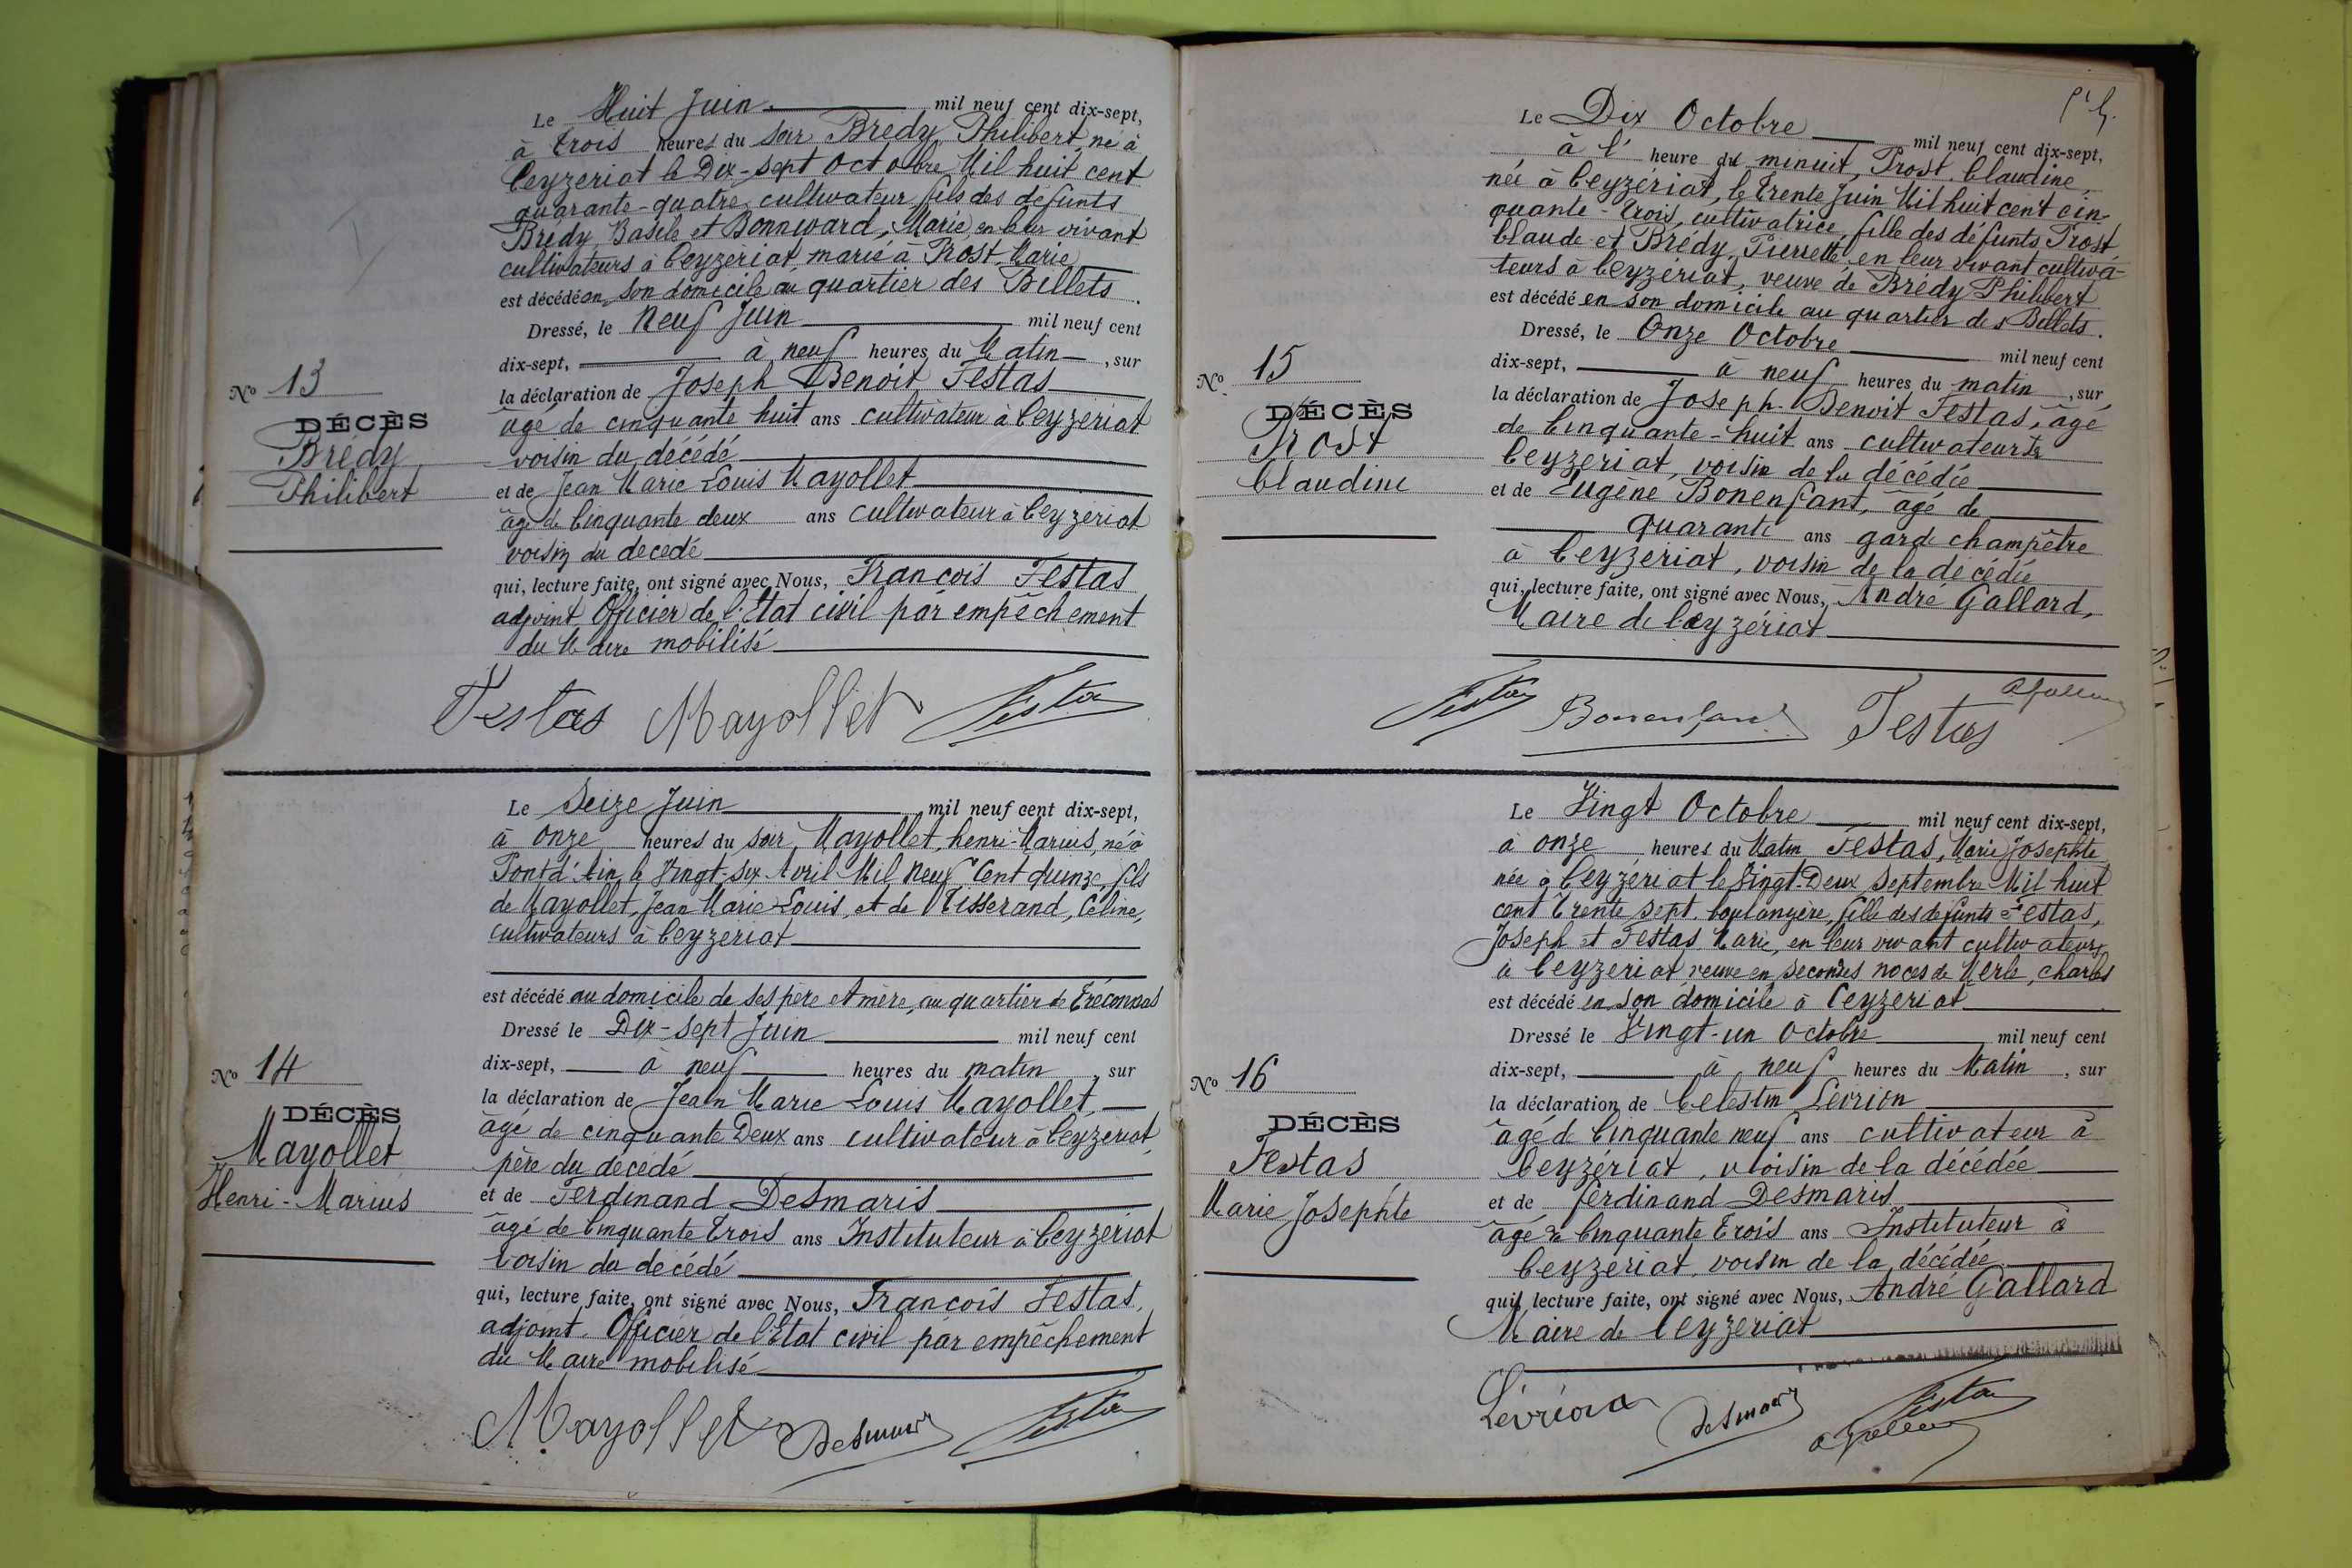 Le Huit Juin mil neuf cent dix-sept,
à trois heures du soir Brédy, Philibert, né à
Ceyzériat le Dix-sept Octobre Mil huit cent
quarante-quatre, cultivateur fils des défunts
Brédy, Basile et Bonnevard, Marie en leur vivant
cultivateurs à Ceyzériat, marié à Prost, Marie
est décédé en son domicile au quartier des Billets.
Dressé, le Neuf Juin mil neuf cent
dix-sept, à neuf heures du Matin, sur
la déclaration de Joseph Benoit Festas
âgé de cinquante huit ans cultivateur à Ceyzériat
voisin du décédé
et de Jean Marie Louis Mayollet
âgé de Cinquante deux ans cultivateur à Ceyzériat
voisin du décedé
qui, lecture faite, ont signé avec Nous, François Festas
adjoint Officier de l'Etat civil par empêchement
du Maire mobilisé
No 13
DÉCÈS
Brédy
Philibert
Festas Mayollet Festas
Le Seize Juin mil neuf cent dix-sept,
à onze heures du soir, Mayollet, henri-Marius, né à
Pont d'Ain, le Vingt-six Avril Mil Neuf Cent quinze, fils
de Mayollet, Jean Marie Louis, et de Tisserand, Céline,
cultivateurs à Ceyzériat
est décédé au domicile de ses père et mère, au quartier de Tréconnas
Dressé le Dix-sept Juin mil neuf cent
dix-sept, à neuf heures du matin, sur
la déclaration de Jean Marie Louis Mayollet,
âgé de cinquante Deux ans cultivateur à Ceyzériat,
père du décédé
et de Ferdinand Desmaris
âgé de Cinquante trois ans Instituteur à Ceyzériat
voisin du décédé
qui, lecture faite, ont signé avec Nous, François Festas,
adjoint. Officier de l'Etat civil par empêchement
du Maire mobilisé
No 14
DÉCÈS
Mayollet
Henri-Marius
Mayollet Desmaris Festas
Le Dix Octobre mil neuf cent dix-sept,
à l' heure du minuit, Prost, Claudine,
née à Ceyzériat, le trente Juin Mil huit cent cin-
quante-trois, cultivatrice, fille des défunts Prost,
Claude et Brédy, Pierrette en leur vivant cultiva-
teurs à Ceyzériat, veuve de Brédy Philibert
est décédé en son domicile au quartier des Billets.
Dressé, le Onze Octobre mil neuf cent
dix-sept, à neuf heures du matin, sur
la déclaration de Joseph-Benoit Festas, âgé
de Cinquante-huit ans cultivateur à
Ceyzériat, voisin de la décédée
et de Eugène Bonenfant, âgé de
quarante ans garde champêtre
à Ceyzériat, voisin de la décédée
qui, lecture faite, ont signé avec Nous, André Gallard,
Maire de Ceyzériat
No 15
DÉCÈS
Prost
Claudine
Festas Bonenfant Festas A Gallard
Le Vingt Octobre mil neuf cent dix-sept,
à onze heures du Matin Festas, Marie Josephte
née à Ceyzériat le Vingt-Deux Septembre Mil huit
cent trente sept, boulangère, fille des défunts Festas,
Joseph et Festas Marie, en leur vivant cultivateurs
à Ceyzériat veuve en secondes noces de Merle, Charles
est décédé en son domicile à Ceyzériat
Dressé le Vingt-un Octobre mil neuf cent
dix-sept, à neuf heures du Matin, sur
la déclaration de Celestin Lévrion
âgé d Cinquante neuf ans cultivateur à
Ceyzériat, voisin de la décédée
et de ferdinand Desmaris
âgé de Cinquante trois ans Instituteur à
Ceyzériat, voisin de la décédée
qui, lecture faite, ont signé avec Nous, André Gallard
Maire de Ceyzériat
No 16
DÉCÈS
Festas
Marie Josephte
Lévrion Desmaris Festas
A Gallard